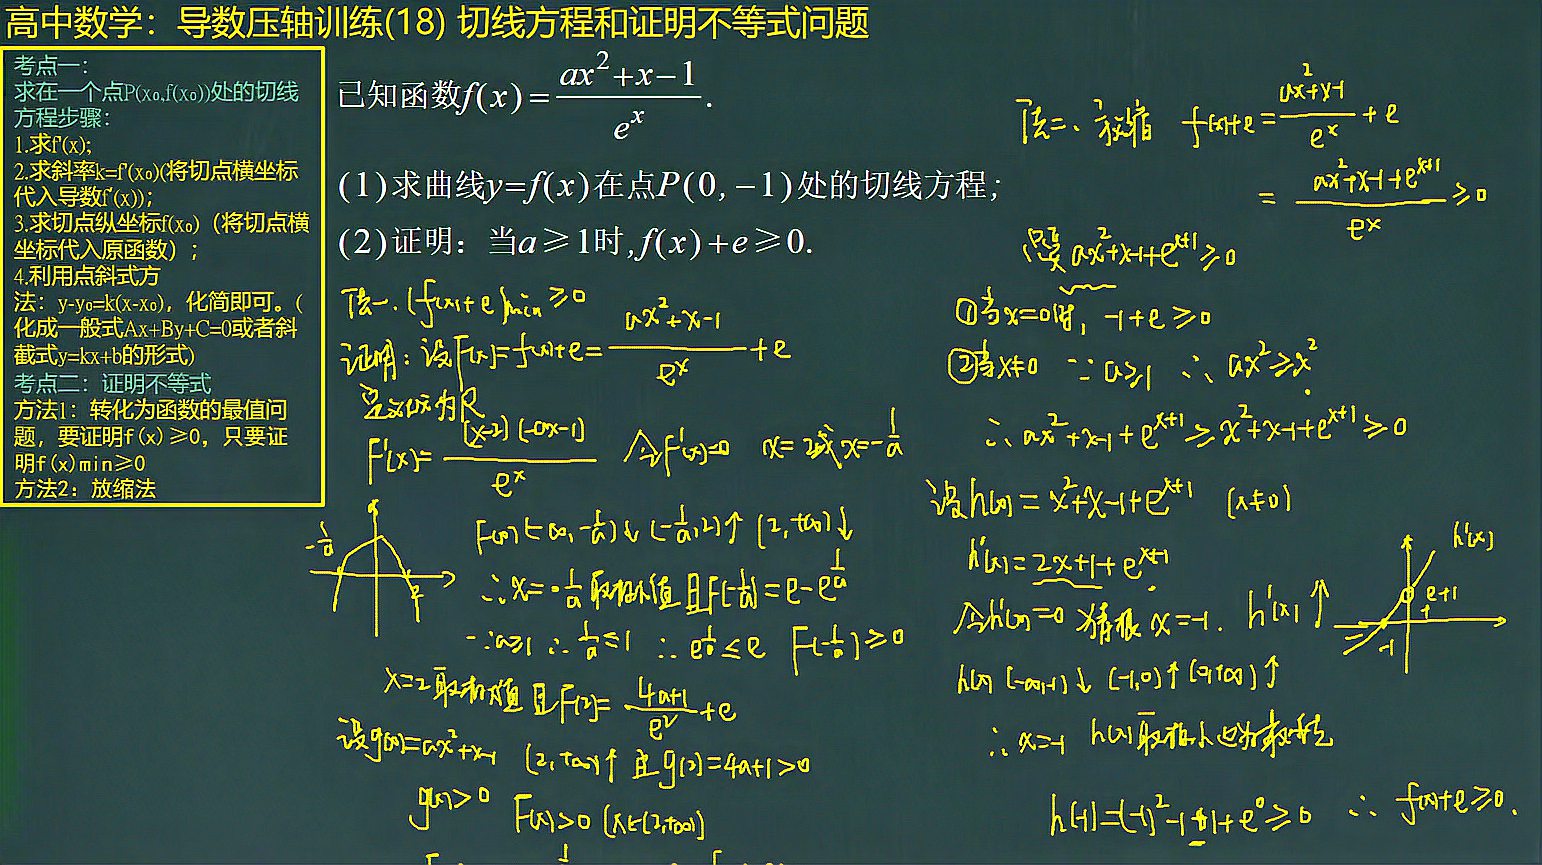 高中数学：导数压轴训练(18) 切线方程和证明不等式问题
考点一：
求在一个点P(x₀,f(x₀))处的切线
方程步骤：
1.求f'(x);
2.求斜率k=f'(x₀)(将切点横坐标
代入导数f'(x));
3.求切点纵坐标f(x₀)（将切点横
坐标代入原函数）;
4.利用点斜式方
法：y-y₀=k(x-x₀)，化简即可。(
化成一般式Ax+By+C=0或者斜
截式y=kx+b的形式)
考点二：证明不等式
方法1：转化为函数的最值问
题，要证明f(x)≥0，只要证
明f(x)min≥0
方法2：放缩法
已知函数f(x)=(ax²+x-1)/eˣ.
(1)求曲线y=f(x)在点P(0,-1)处的切线方程;
(2)证明：当a≥1时,f(x)+e≥0.
法一.(f(x)+e)min≥0
证明：设F(x)=f(x)+e=(ax²+x-1)/eˣ+e
定义域为R
F'(x)=(x-2)(-ax-1)/eˣ 令F'(x)=0 x=2或x=-1/a
-1/a 2
F(x)(-∞,-1/a)↓(-1/a,2)↑(2,+∞)↓
∴x=-1/a取极小值且F(-1/a)=e-e^(1/a)
∵a≥1∴1/a≤1 ∴e^(1/a)≤e F(-1/a)≥0
x=2取极大值且F(2)=(4a+1)/e²+e
设g(x)=ax²+x-1 (2,+∞)↑且g(2)=4a+1>0
g(x)>0 F(x)>0 (x∈(2,+∞))
法二、放缩 f(x)+e=(ax²+x-1)/eˣ+e
=(ax²+x-1+e^(x+1))/eˣ≥0
只要ax²+x-1+e^(x+1)≥0
①当x=0时，-1+e≥0
②当x≠0 ∵a≥1 ∴ax²≥x²
∴ax²+x-1+e^(x+1)≥x²+x-1+e^(x+1)≥0
设h(x)=x²+x-1+e^(x+1) (x≠0)
h'(x)=2x+1+e^(x+1)
令h'(x)=0 猜根x=-1. h'(x)↑
h'(x) e+1 -1
h(x)(-∞,-1)↓(-1,0)↑(0,+∞)↑
∴x=-1 h(x)取极小也为最小
h(-1)=(-1)²-1-1+e⁰≥0 ∴f(x)+e≥0.